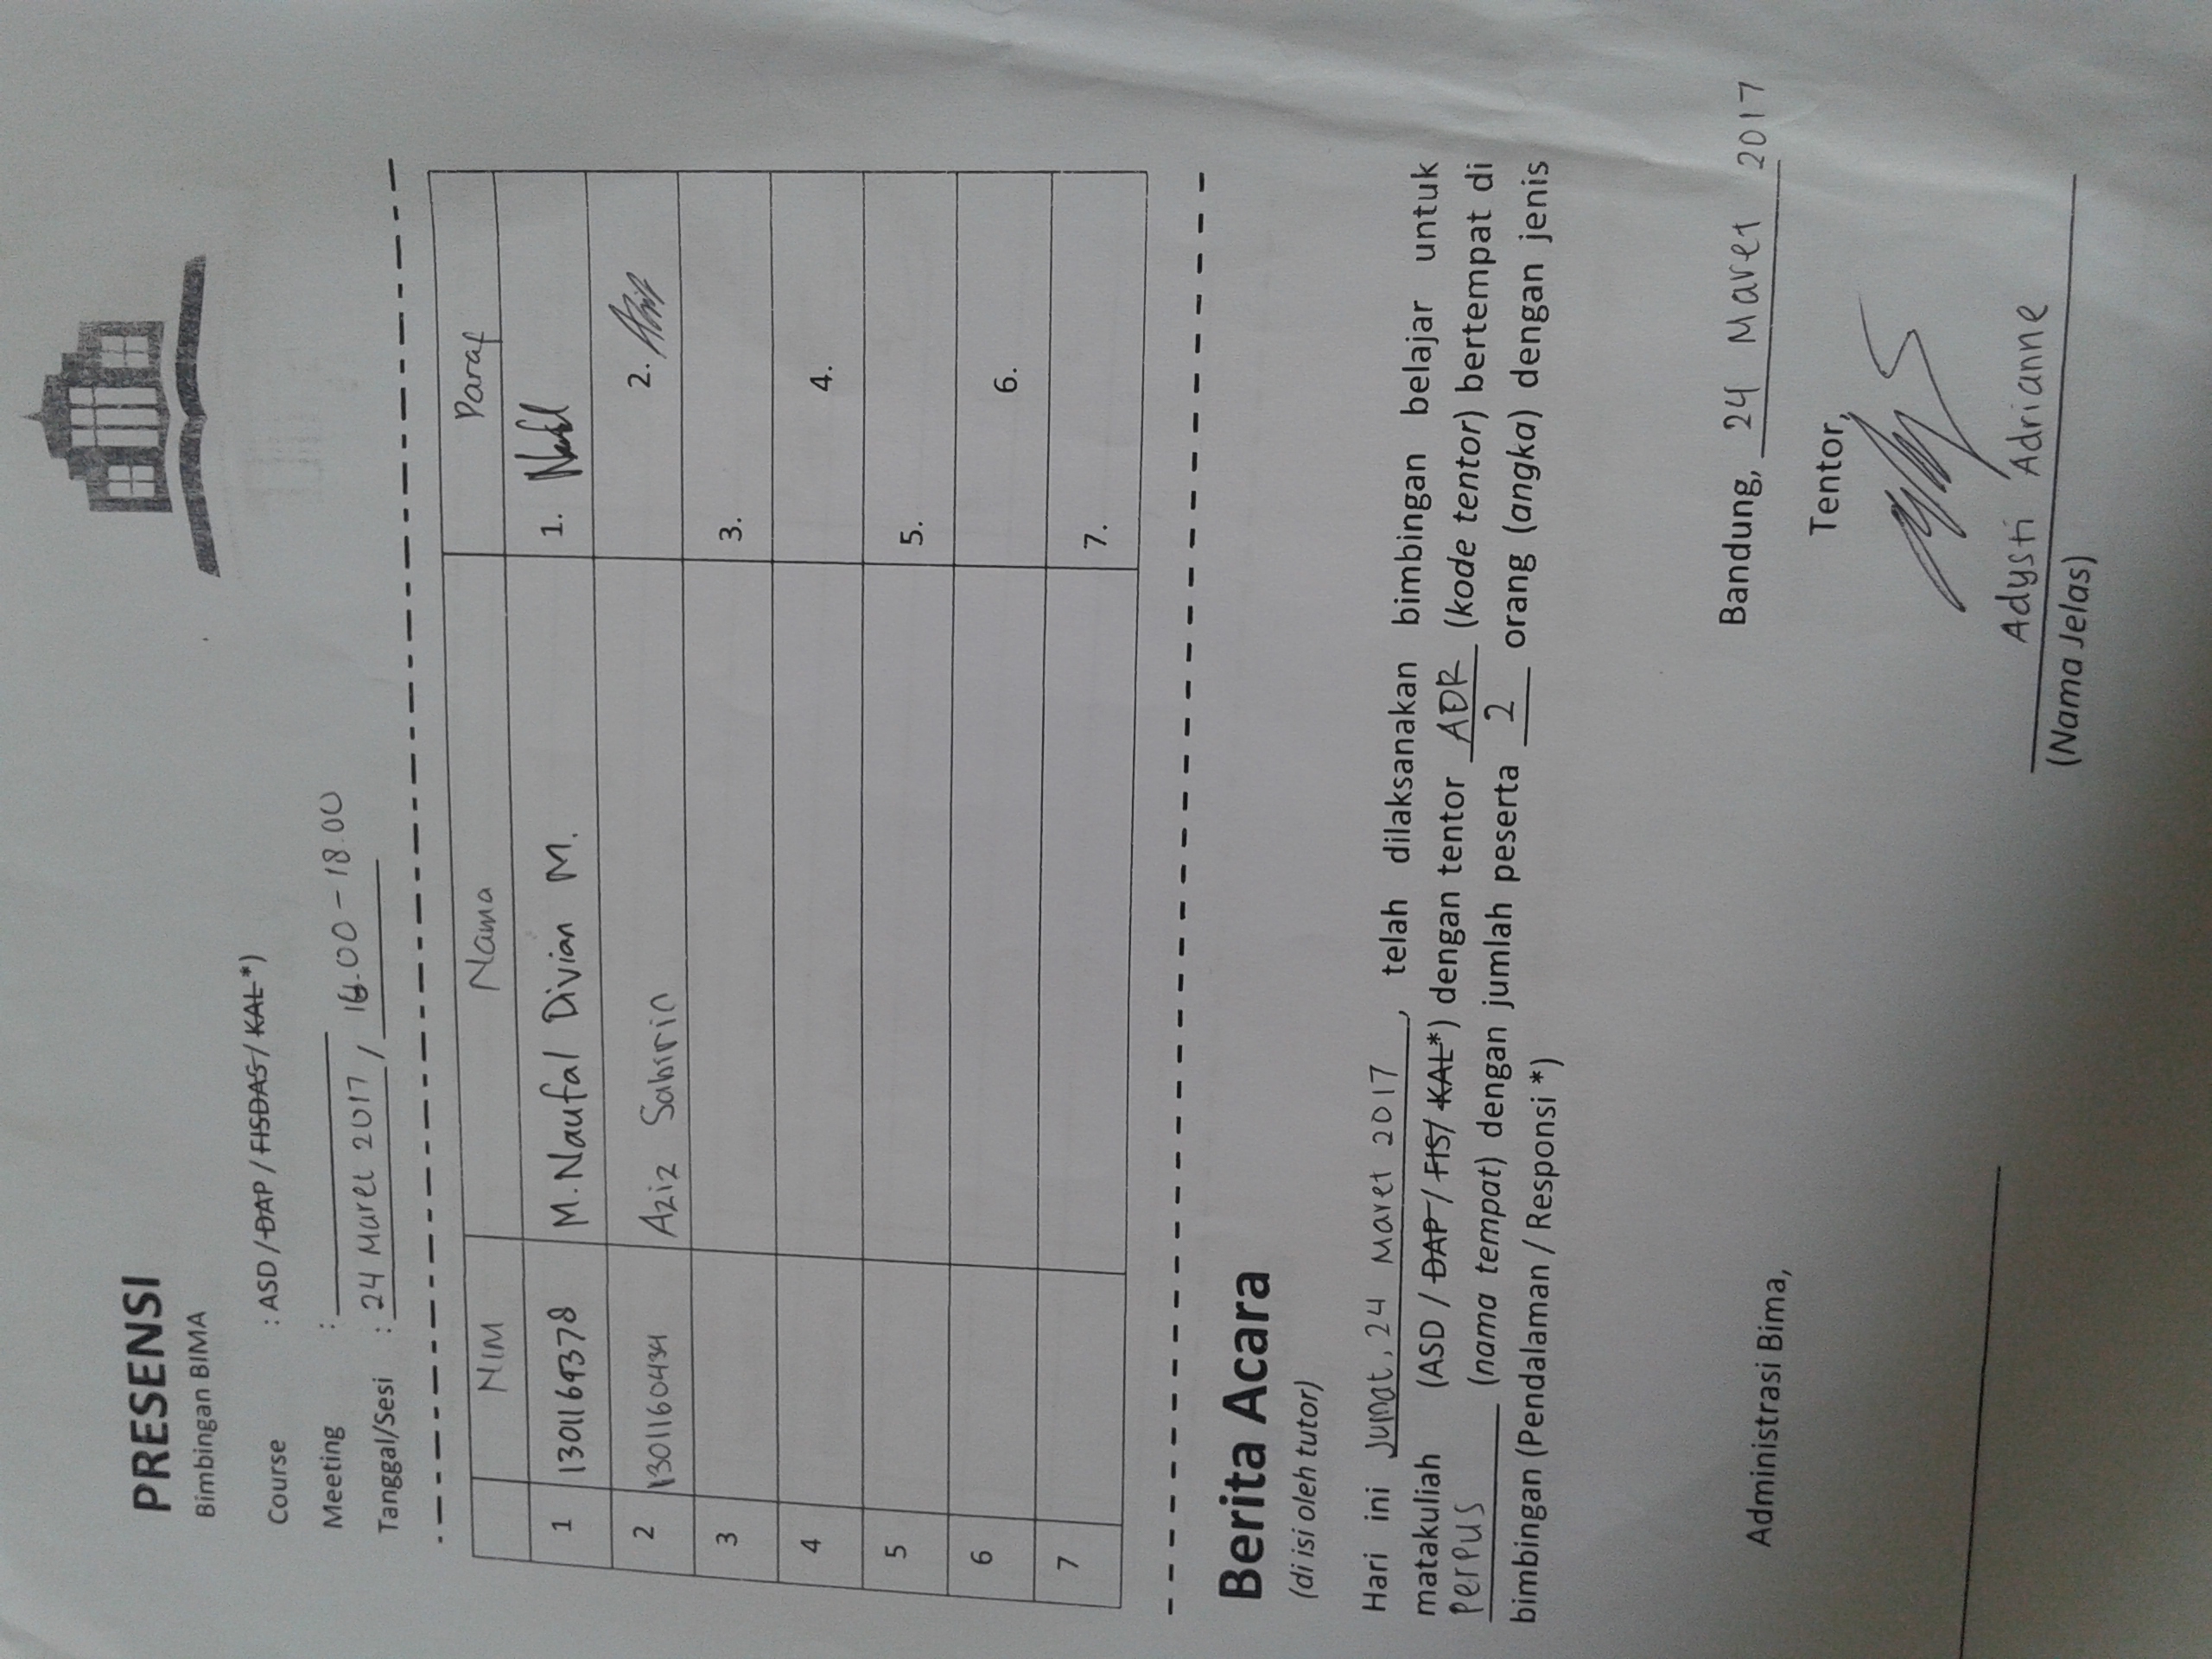 PRESENSI
Bimbingan BIMA
Course : ASD / DAP / FISDAS / KAL *)
Meeting :
Tanggal/Sesi : 24 Maret 2017 / 16.00 - 18.00
NIM Nama Paraf
1 1301164378 M. Naufal Divian M. 1.
2 1301160434 Aziz Sabirin 2.
3 3.
4 4.
5 5.
6 6.
7 7.
Berita Acara
(di isi oleh tutor)
Hari ini Jumat, 24 Maret 2017, telah dilaksanakan bimbingan belajar untuk
matakuliah (ASD / DAP / FIS/ KAL*) dengan tentor ADR (kode tentor) bertempat di
perpus (nama tempat) dengan jumlah peserta 2 orang (angka) dengan jenis
bimbingan (Pendalaman / Responsi *)
Bandung, 24 Maret 2017
Administrasi Bima,
Tentor,
Adysti Adrianne
(Nama Jelas)